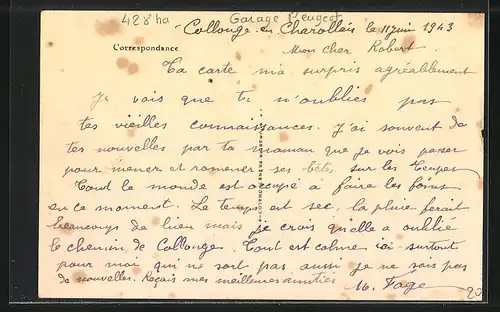 428 ha Garage Peugeot
Collonge en Charollais le 11 juin 1943
Correspondance
Mon cher Robert.
Ta carte m'a surpris agréablement
Je vois que tu n'oublies pas
tes vieilles connaissances. J'ai souvent de
tes nouvelles par ta maman que je vois passer
pour mener et ramener ses bêtes sur les
Tout le monde est occupé a faire les foins
en ce moment. Le temps est sec, la pluie ferait
beaucoup de bien mais je crois qu'elle a oublié
le chemin de Collonge. Tout est calme ici surtout
pour moi qui ne sort pas aussi je ne sais pas
de nouvelles. Reçois mes meilleures amitiés
M. Fage
20